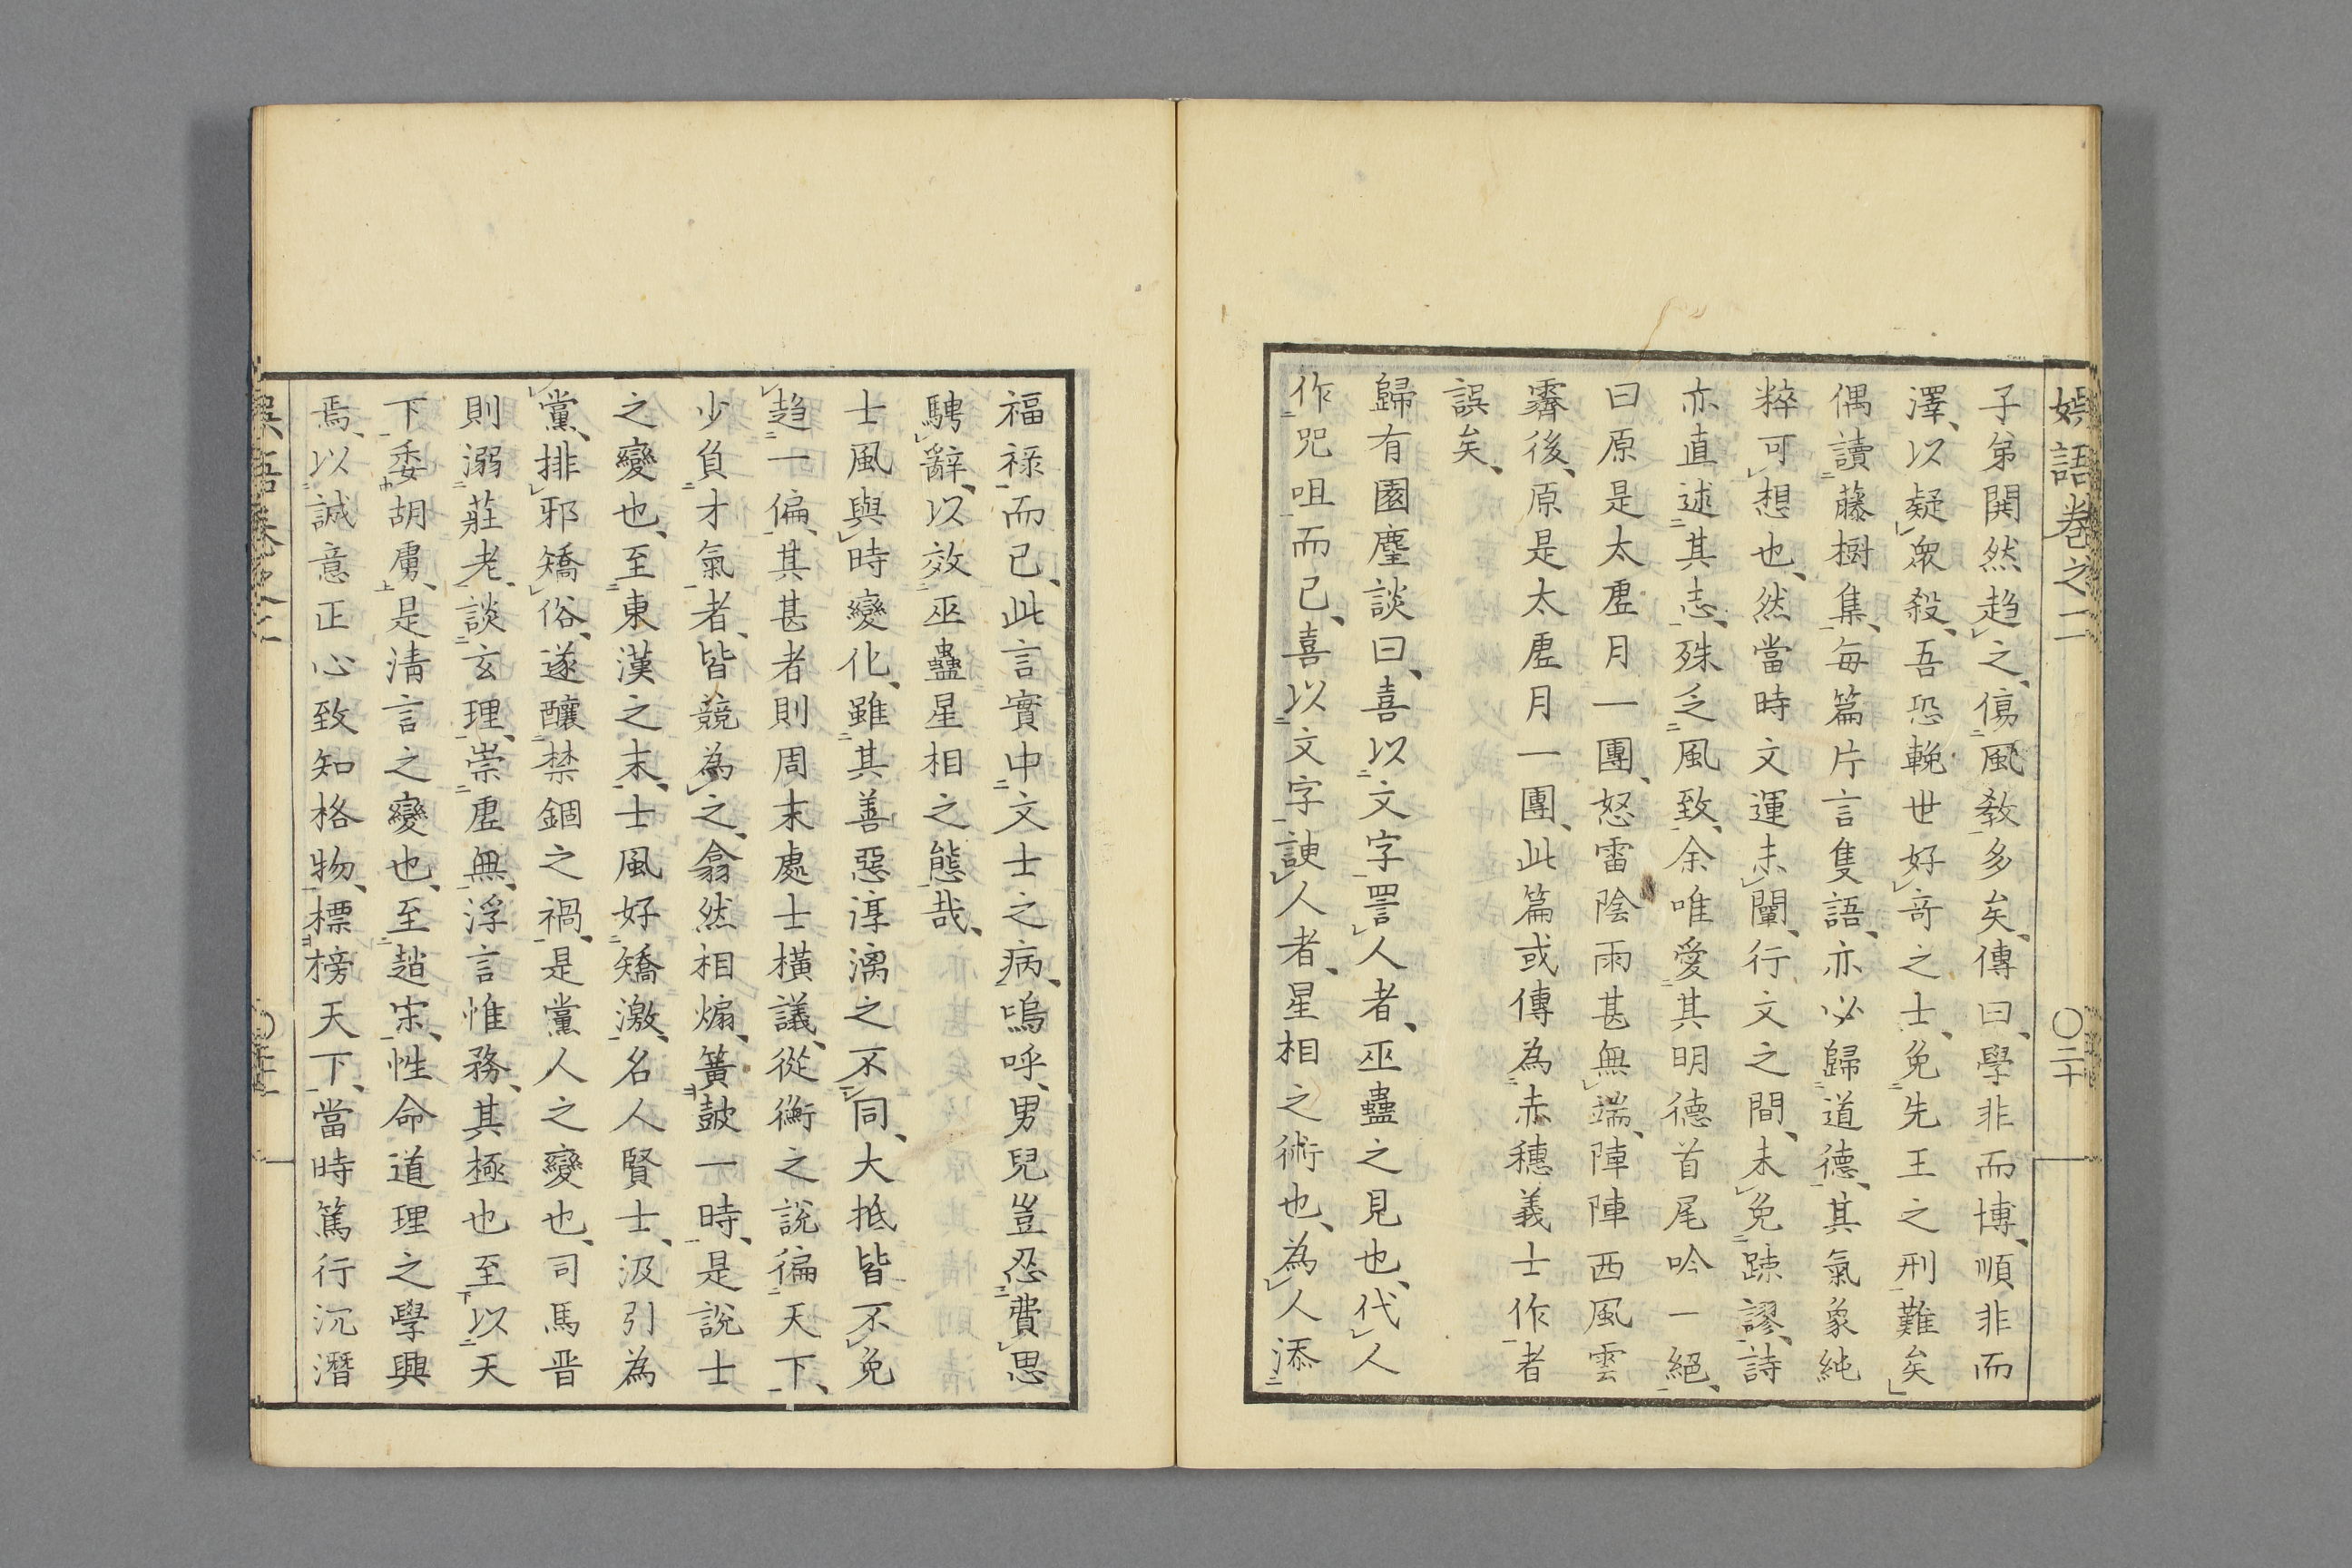 娯語卷之二
〇二十
子弟閧然趋之、傷風敎多矣、傳曰、學非而博、順非而
澤、以疑衆殺、吾恐輓世好竒之士、免先王之刑難矣
偶讀藤樹集、每篇片言隻語、亦必歸道德、其氣象純
粹可想也、然當時文運未闡、行文之間、未免踈謬、詩
亦直述其志、殊乏風致、余唯愛其明德首尾吟一絕、
曰原是太虛月一團、怒雷陰雨甚無端、陣陣西風雲
霽後、原是太虛月一團、此篇或傳為赤穗義士作者
誤矣、
歸有園麈談曰、喜以文字詈人者、巫蠱之見也、代人
作咒咀而已、喜以文字諛人者、星相之術也、為人添
福祿而已、此言實中文士之病、嗚呼、男兒豈忍費思
騁辭、以效巫蠱星相之態哉、
士風與時變化、雖其善惡淳漓之不同、大抵皆不免
趋一偏、其甚者則周末處士橫議、從衡之說徧天下、
少負才氣者、皆競為之、翕然相煽、簧皷一時、是說士
之變也、至東漢之末、士風好矯激、名人賢士、汲引為
黨、排邪矯俗、遂釀禁錮之禍、是黨人之變也、司馬晋
則溺莊老、談玄理、崇虛無、浮言惟務、其極也至以天
下委胡虜、是清言之變也、至趙宋、性命道理之學興
焉、以誠意正心致知格物、標榜天下、當時篤行沉潛
娯語卷之二